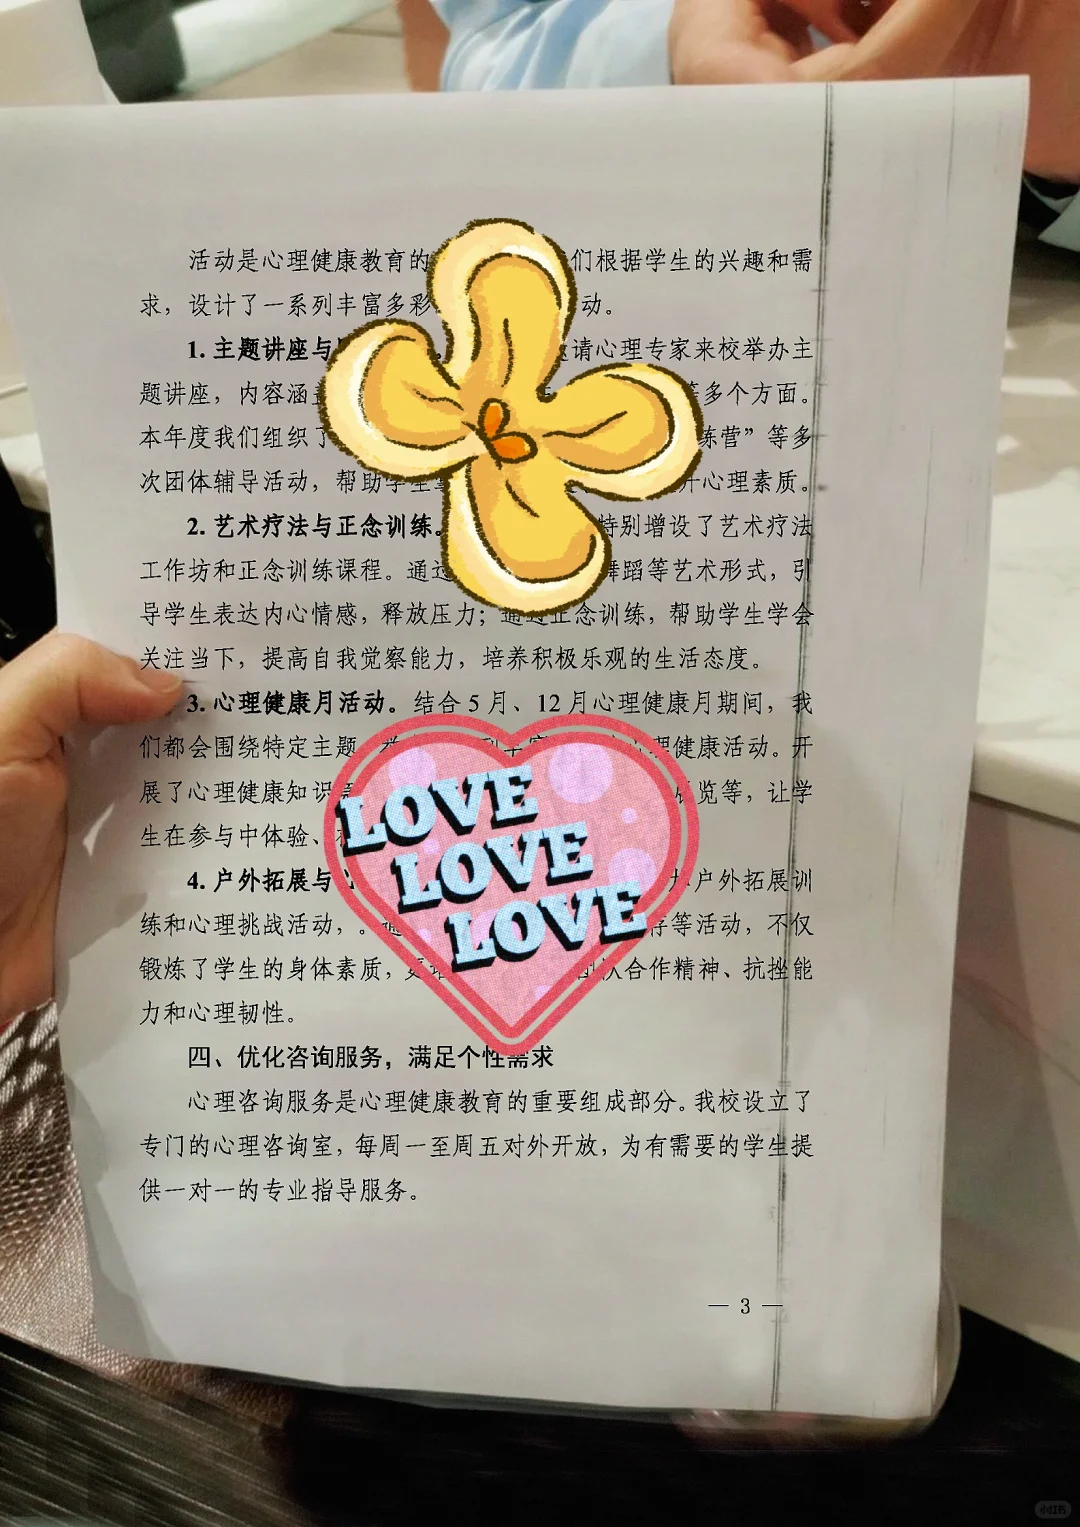 活动是心理健康教育的 们根据学生的兴趣和需
求，设计了一系列丰富多彩 动。
1. 主题讲座与 请心理专家来校举办主
题讲座，内容涵 等多个方面。
本年度我们组织了 练营”等多
次团体辅导活动，帮助学生 心理素质。
2. 艺术疗法与正念训练。 特别增设了艺术疗法
工作坊和正念训练课程。通过 舞蹈等艺术形式，引
导学生表达内心情感，释放压力；通过正念训练，帮助学生学会
关注当下，提高自我觉察能力，培养积极乐观的生活态度。
3. 心理健康月活动。结合 5 月、12 月心理健康月期间，我
们都会围绕特定主题 心理健康活动。开
展了心理健康知识 展览等，让学
生在参与中体验、
LOVE
LOVE
LOVE
4. 户外拓展与 户外拓展训
练和心理挑战活动，。 存等活动，不仅
锻炼了学生的身体素质， 团队合作精神、抗挫能
力和心理韧性。
四、优化咨询服务，满足个性需求
心理咨询服务是心理健康教育的重要组成部分。我校设立了
专门的心理咨询室，每周一至周五对外开放，为有需要的学生提
供一对一的专业指导服务。
— 3 —